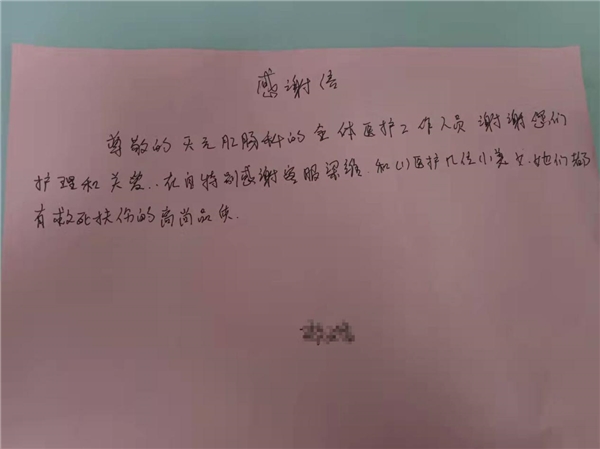 感谢信
尊敬的天元肛肠科的全体医护工作人员谢谢您们
护理和关爱..在自特别感谢客服梁经.和(1)医护几位小美女.她们都
有救死扶伤的高尚品质.